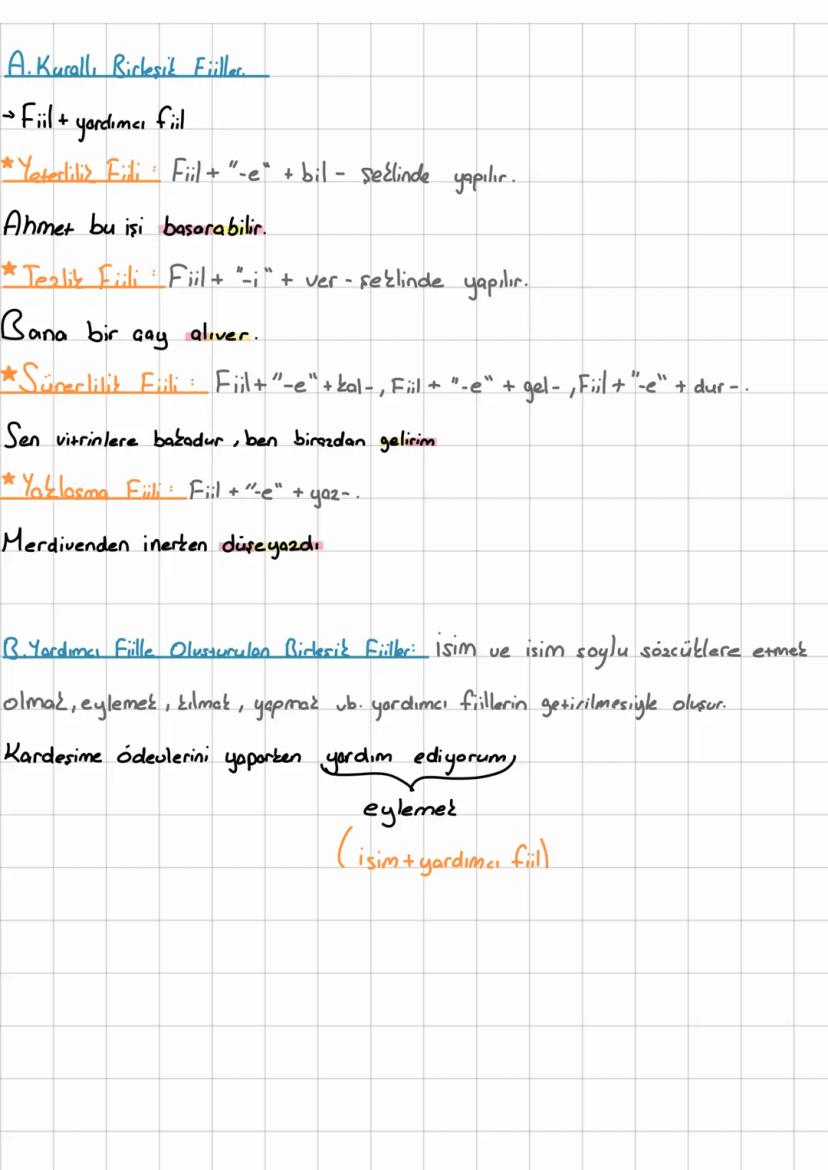 A. Kurallı Birleşik Fiiller
→ Fiil + yardımcı fiil
★ Yeterlilik Fiili : Fiil + "-e" + bil - şeklinde yapılır.
Ahmet bu işi başarabilir.
★ Tezlik Fiili : Fiil + "-i" + ver - şeklinde yapılır.
Bana bir çay alıver.
★ Sürerlilik Fiili : Fiil + "-e" + kal-, Fiil + "-e" + gel-, Fiil + "-e" + dur-.
Sen vitrinlere bakadur, ben birazdan gelirim
★ Yaklaşma Fiili : Fiil + "-e" + yaz-.
Merdivenden inerken düşeyazdı
B. Yardımcı Fiille Oluşturulan Birleşik Fiiller: isim ve isim soylu sözcüklere etmek
olmak, eylemek, kılmak, yapmak vb. yardımcı fiillerin getirilmesiyle oluşur.
Kardeşime ödevlerini yaparken yardım ediyorum
eylemek
(isim + yardımcı fiil)